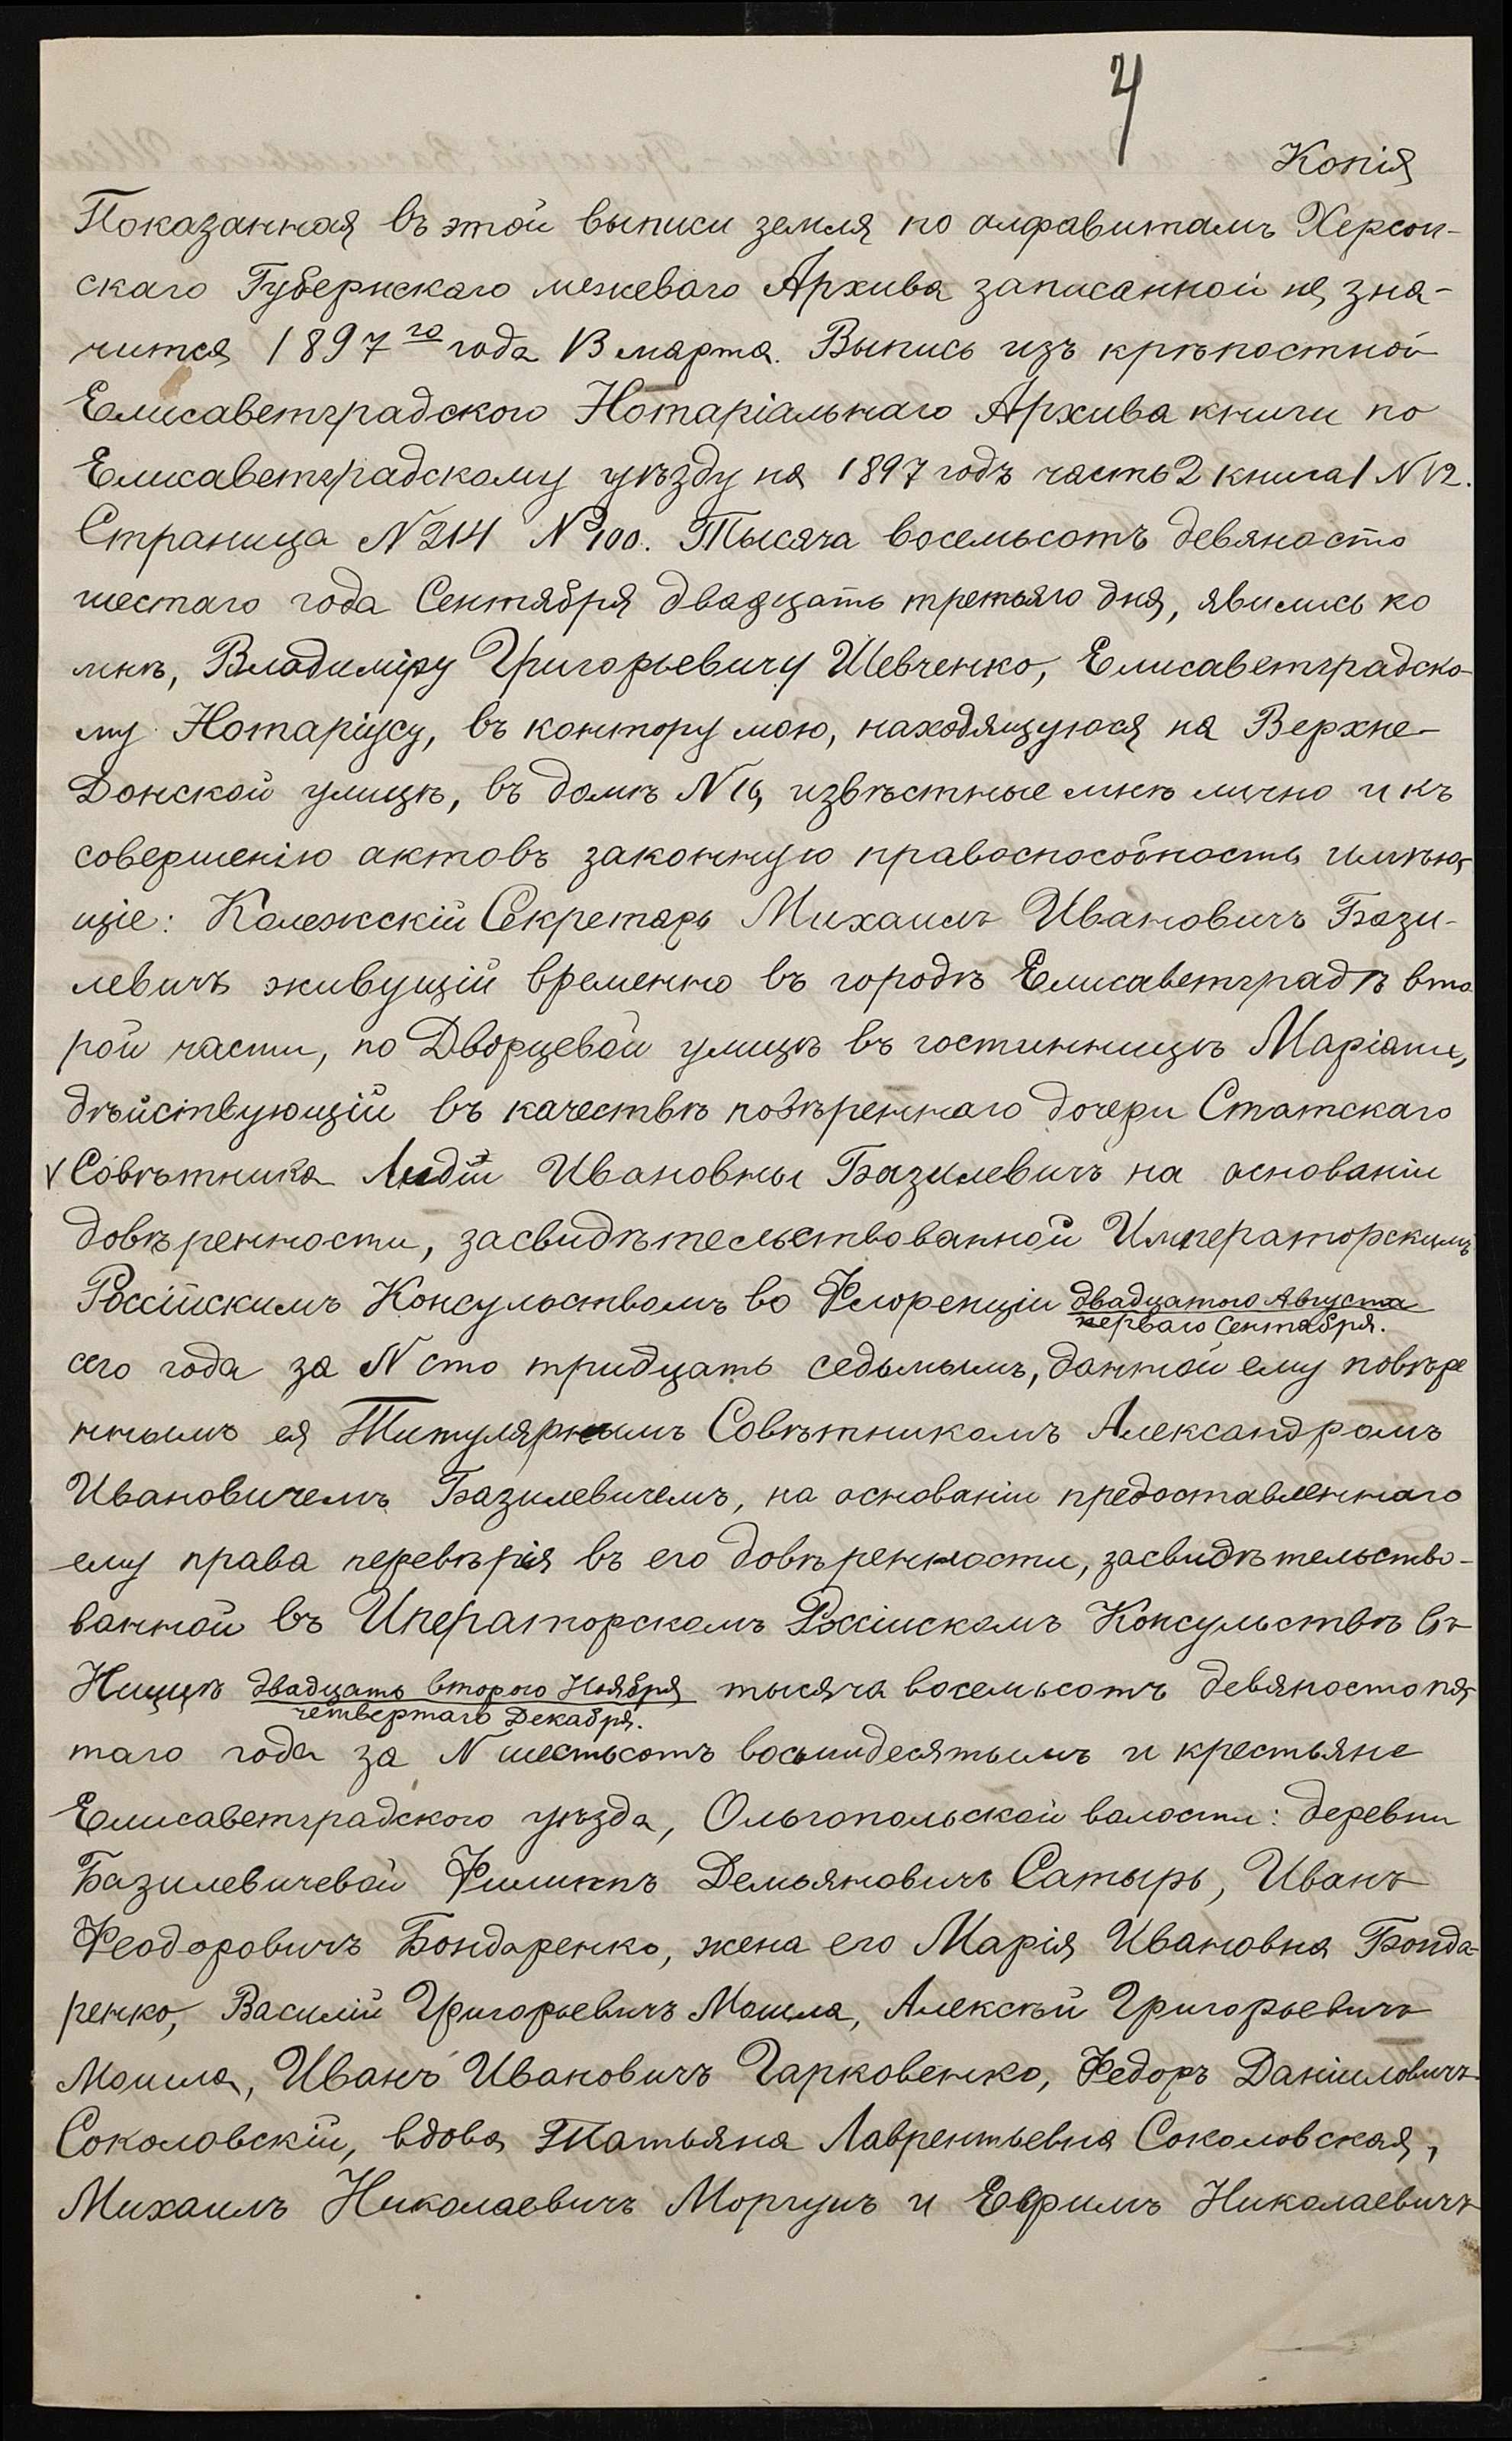 4
Копія
Показанная въ этой выписи земля по алфавитамъ Херсон-
скаго Губернскаго межеваго Архива записанной не зна-
чится 1897го года 13 марта. Выпись изъ крѣпостной
Елисаветградского Нотаріальнаго Архива книги по
Елисаветградскому уѣзду на 1897 годъ часть 2 книга 1 N 12.
Страница N 214 N 100. Тысяча восемьсотъ девяносто
шестаго года Сентября двадцать третьяго дня, явились ко
мнѣ, Владиміру Григорьевичу Шевченко, Елисаветградско-
му Нотаріусу, въ контору мою, находящуюся на Верхне-
Донской улицѣ, въ домѣ N 16, извѣстные мнѣ лично и къ
совершенію актовъ законную правоспособность имѣю-
щіе: Колежскій Секретарь Михаилъ Ивановичъ Бази-
левичъ живущій временно въ городѣ Елисаветградѣ вто
рой части, по Дворцевой улицѣ въ гостинницѣ Маріани,
дѣйствующій въ качествѣ повѣреннаго дочери Статскаго
Совѣтника Лидіи Ивановны Базилевичъ на основаніи
довѣренности, засвидѣтельствованной Императорскимъ
Россійскимъ Консульствомъ во Флоренціи двадцатого Августа
перваго Сентября.
сего года за N сто тридцать седьмымъ, данной ему повѣре
ннымъ ея Титулярнымъ Совѣтникомъ Александромъ
Ивановичемъ Базилевичемъ, на основаніи предоставленнаго
ему права перевѣрія въ его довѣренности, засвидѣтельство-
ванной въ Иператорскомъ Россійскомъ Консульствѣ въ
Ниццѣ двадцать второго Ноября тысяча восемьсотъ девяносто пя
четвертаго Декабря.
таго года за N шестьсотъ восьмидесятымъ и крестьяне
Елисаветградского уѣзда, Ольгопольской волости: деревни
Базилевичевой Филиппъ Демьяновичъ Сатырь, Иванъ
Феодоровичъ Бондаренко, жена его Марія Ивановна Бонда-
ренко, Василій Григорьевичъ Моила, Алексѣй Григорьевичъ
Моила, Иванъ Ивановичъ Гарковенко, Федоръ Даниловичъ
Соколовскій, вдова Татьяна Лаврентьевна Соколовская,
Михаилъ Николаевичъ Моргунъ и Ефимъ Николаевичъ